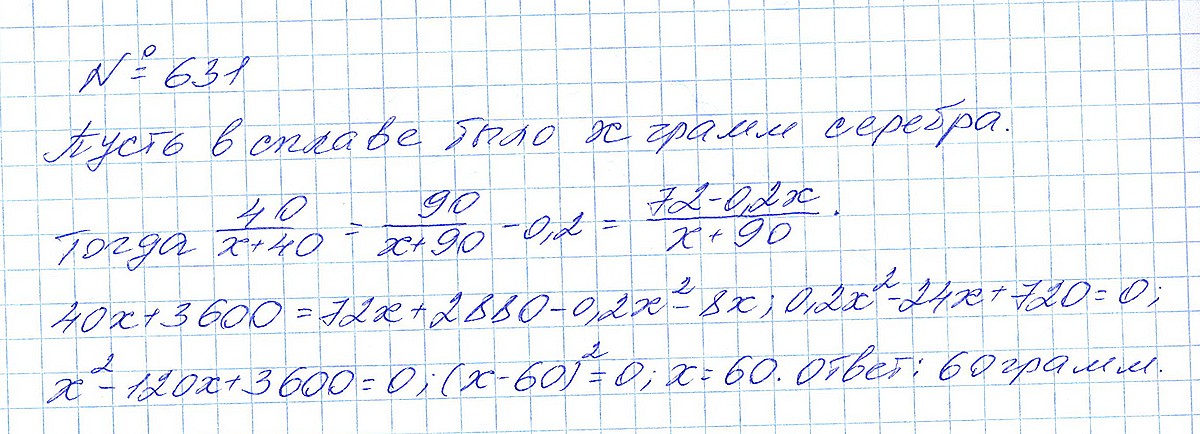 № 631
Пусть в сплаве было x грамм серебра.
Тогда 40/(x+40) = 90/(x+90) - 0,2 = (72-0,2x)/(x+90).
40x+3600=72x+2880-0,2x²-8x; 0,2x²-24x+720=0;
x²-120x+3600=0; (x-60)²=0; x=60. Ответ: 60 грамм.